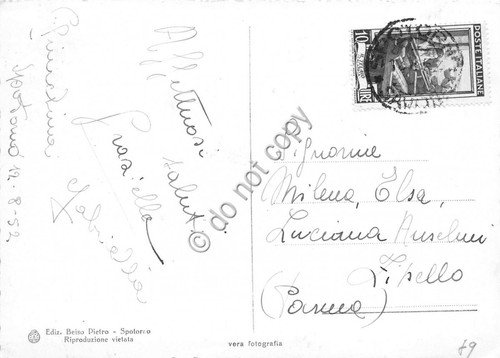 Spotorno 12-8-52
Affettuosi saluti
Graziella
Gabriella
10 LIRE
POSTE ITALIANE
Signorine
Milena, Elsa,
Luciana Anselmi
Zibello
(Parma)
Ediz. Beiso Pietro - Spotorno
Riproduzione vietata
vera fotografia
79
© do not copy